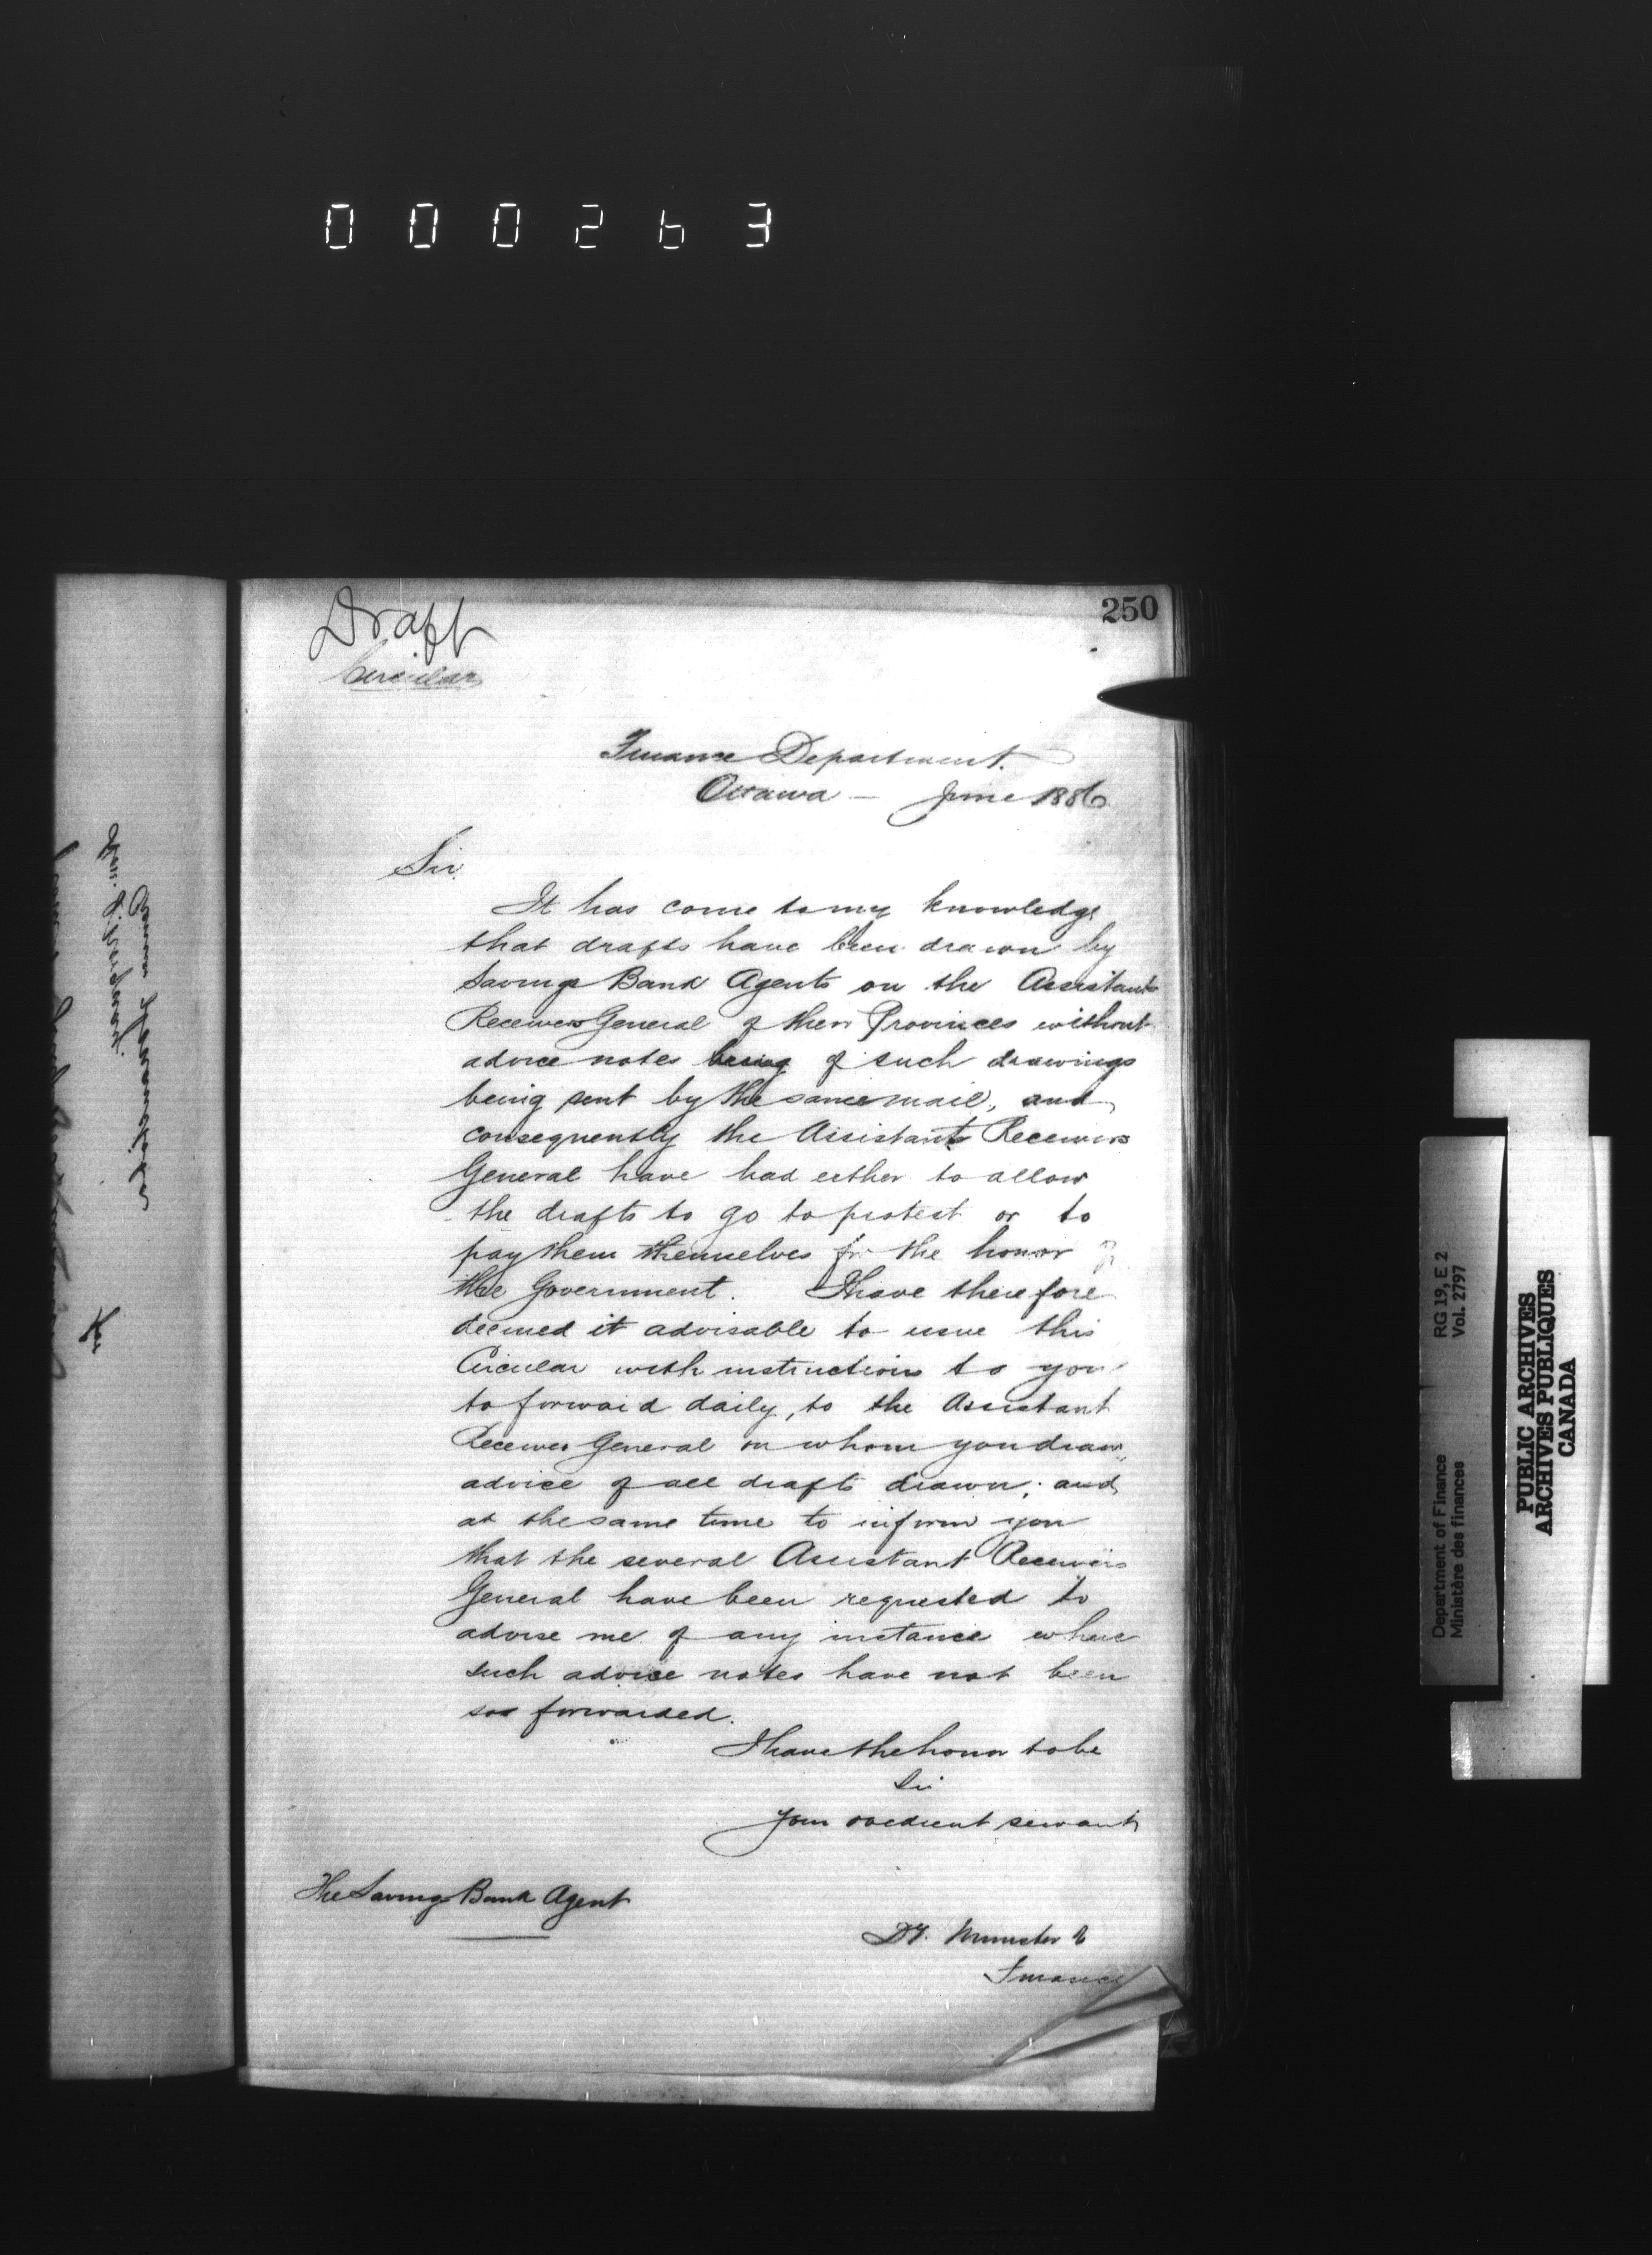 000263
250
Draft
Circular
Finance Department.
Ottawa — June 1886
Sir.
It has come to my knowledge
that drafts have been drawn by
Savings Bank Agents on the Assistant
Receivers General of their Provinces without
advice notes being of such drawings
being sent by the same mail, and
consequently the Assistants Receivers
General have had either to allow
the drafts to go to protest or to
pay them themselves for the honor of
the Government. I have therefore
deemed it advisable to issue this
Circular with instructions to you
to forward daily, to the Assistant
Receiver General on whom you draw
advice of all drafts drawn; and
at the same time to inform you
that the several Assistant Receivers
General have been requested to
advise me of any instance where
such advice notes have not been
so forwarded.
I have the honor to be
Sir
Your obedient servant
The Savings Bank Agent
Dy. Minister of
Finance
Department of Finance
Ministère des finances
RG 19, E 2
Vol. 2797
PUBLIC ARCHIVES
ARCHIVES PUBLIQUES
CANADA